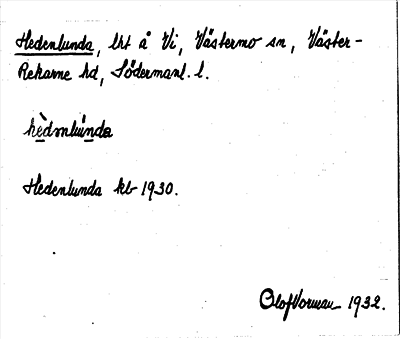 Hedenlunda, lht å Vi, Västermo sn, Väster-
Rekarne hd, Södermanl. l.
hèdənlúnda
Hedenlunda kb 1930.
Olof Vorman 1932.